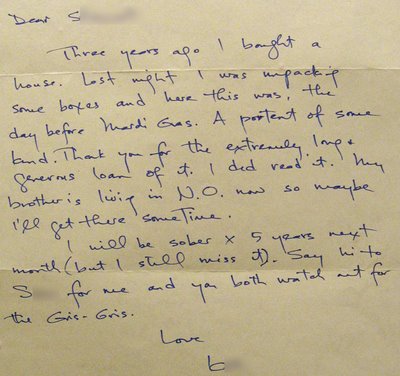 Dear S
Three years ago I bought a
house. Last night I was unpacking
some boxes and here this was, the
day before Mardi Gras. A portent of some
kind. Thank you for the extremely long &
generous loan of it. I did read it. My
brother is living in N.O. now so maybe
I'll get there sometime.
I will be sober x 5 years next
month (but I still miss it). Say hi to
S for me and you both watch out for
the Gris-Gris.
Love
b